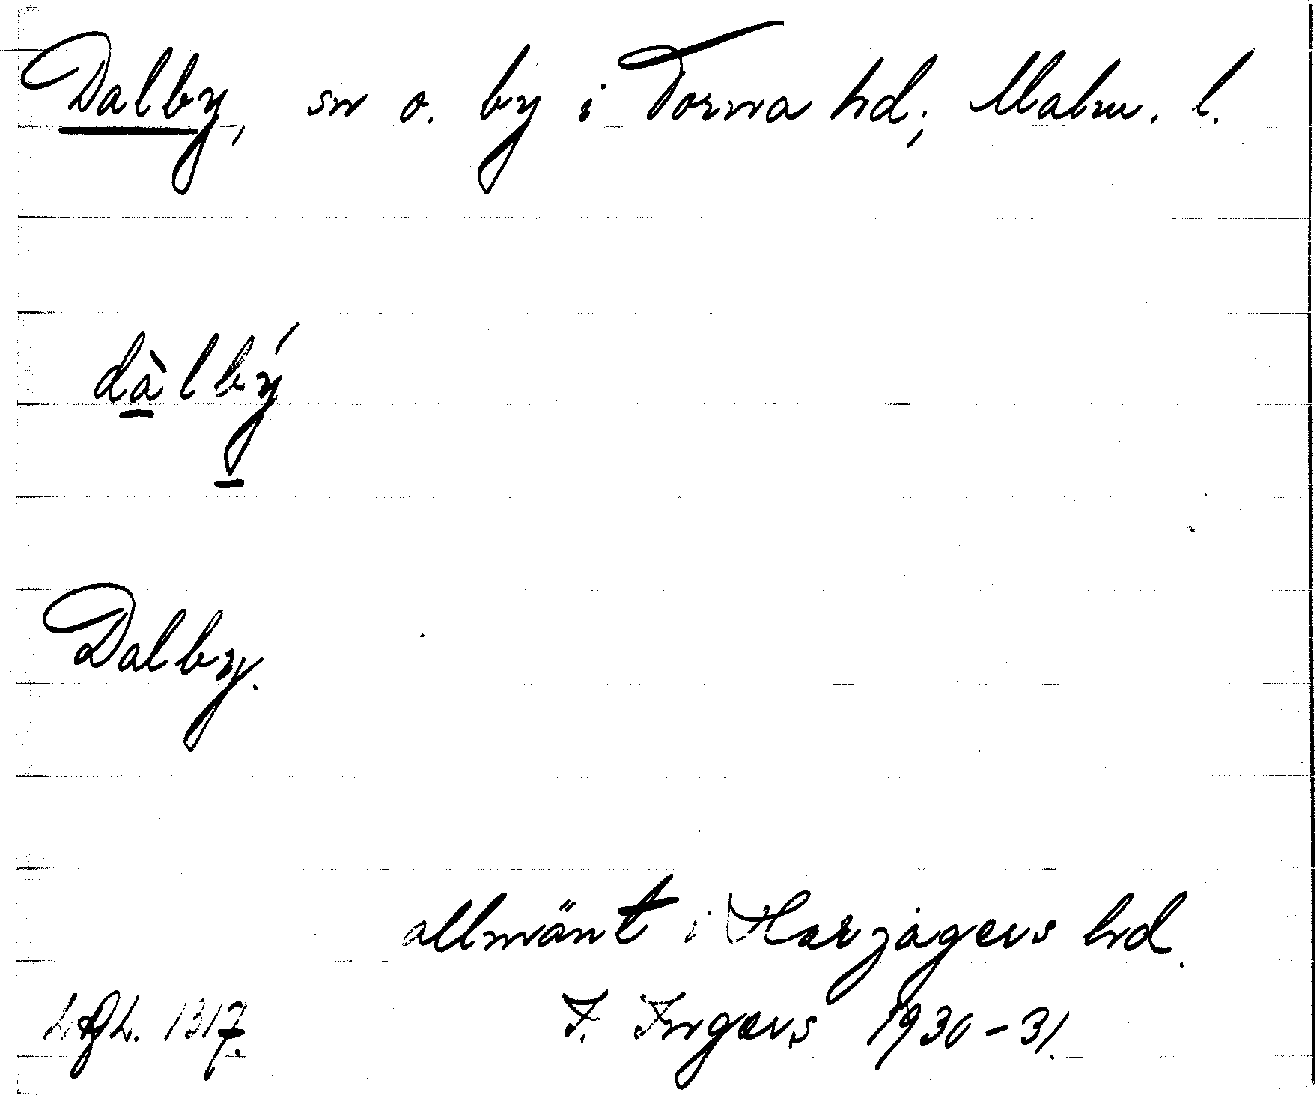 Dalby, sn o. by i Torna hd; Malm. l.
dàlbý
Dalby.
allmänt i Harjagers hd.
I. Ingers 1930-31.